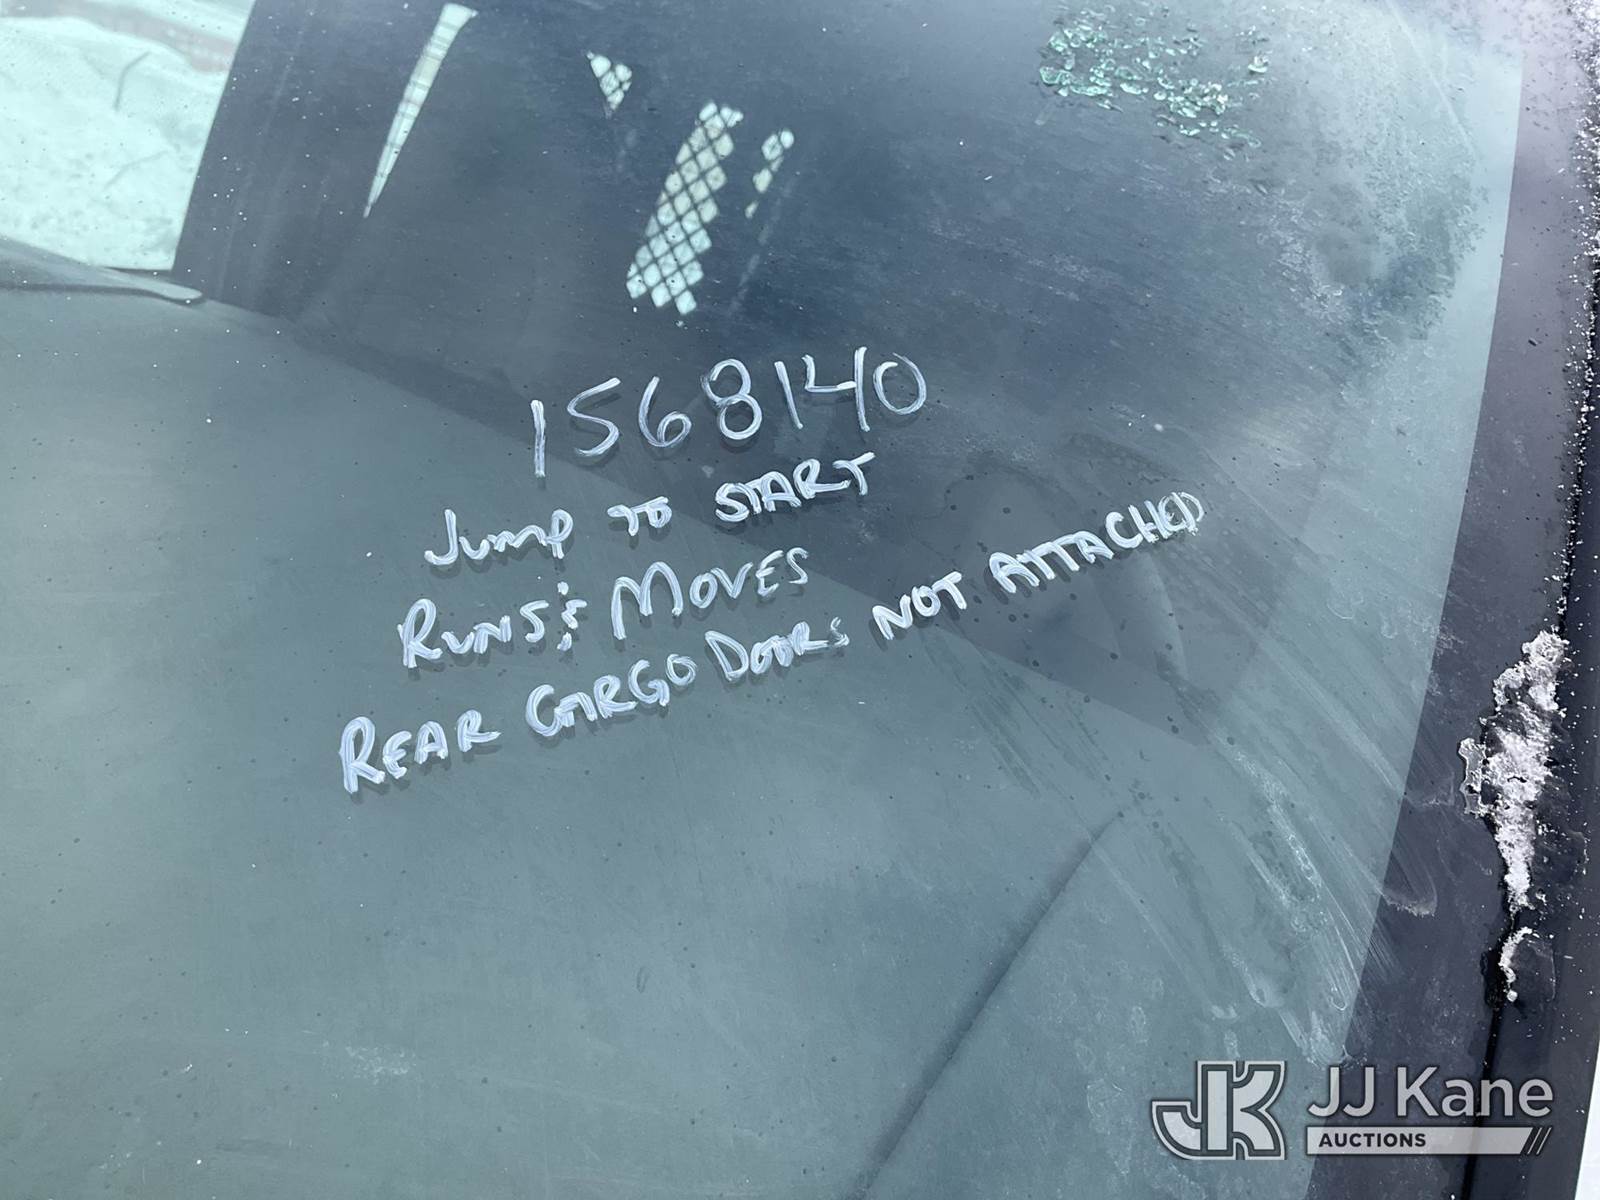 1568140
Jump TO START
RUNS & MOVES
REAR CARGO DOORS NOT ATTACHED
JK JJ Kane
AUCTIONS